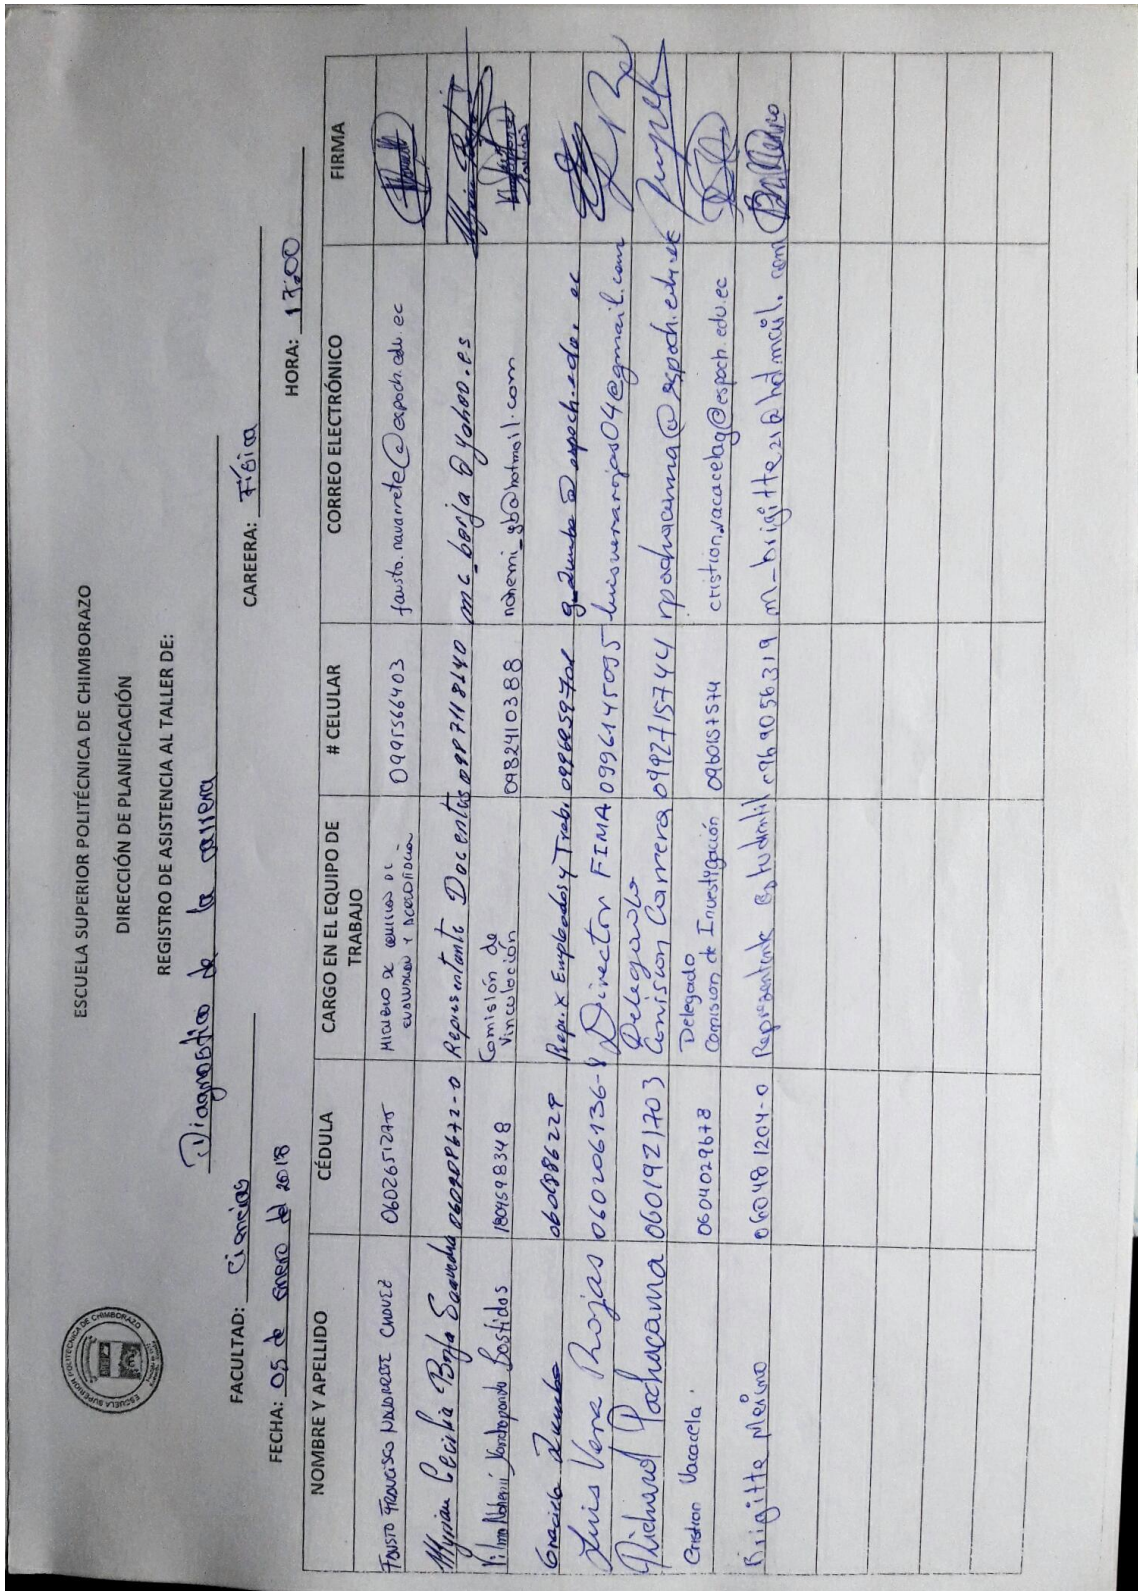 ESCUELA SUPERIOR POLITÉCNICA DE CHIMBORAZO
ESCUELA SUPERIOR POLITÉCNICA DE CHIMBORAZO
DIRECCIÓN DE PLANIFICACIÓN
REGISTRO DE ASISTENCIA AL TALLER DE:
Diagnostico de la carrera
FACULTAD: Ciencias CAREERA: Física
FECHA: 05 de enero del 2018 HORA: 17:00
NOMBRE Y APELLIDO CÉDULA CARGO EN EL EQUIPO DE TRABAJO # CELULAR CORREO ELECTRÓNICO FIRMA
Fausto Francisco Navarrete Chávez 0602651275 Miembro de comisión de evaluación y 0995566403 fausto.navarrete@espoch.edu.ec
Myriam Cecilia Borja Saavedra Representante Docentes 0987118140 mc_borja@yahoo.es
Vilma Nohemí Bastidos 1804598348 Comisión de Vinculación 0982410388 nohemi_yb@hotmail.com
Graciela Zumba Repr. x Empleados y Trab.
Luis Vera Rojas 060206136-8 Director FIMA 0996145095 luisverarojas04@gmail.com
Richard Pachacama 0601921703 Delegado Comision Carrera 0992715744 rpachacama@espoch.edu.ec
Cristian Vacacela. 0604029678 Delegado Comision de Investigación 0960157574 cristian.vacacelag@espoch.edu.ec
Brigitte Merino 06048 1204-0 Representante Estudiantil 0969056319 m_brigitte21@hotmail.com